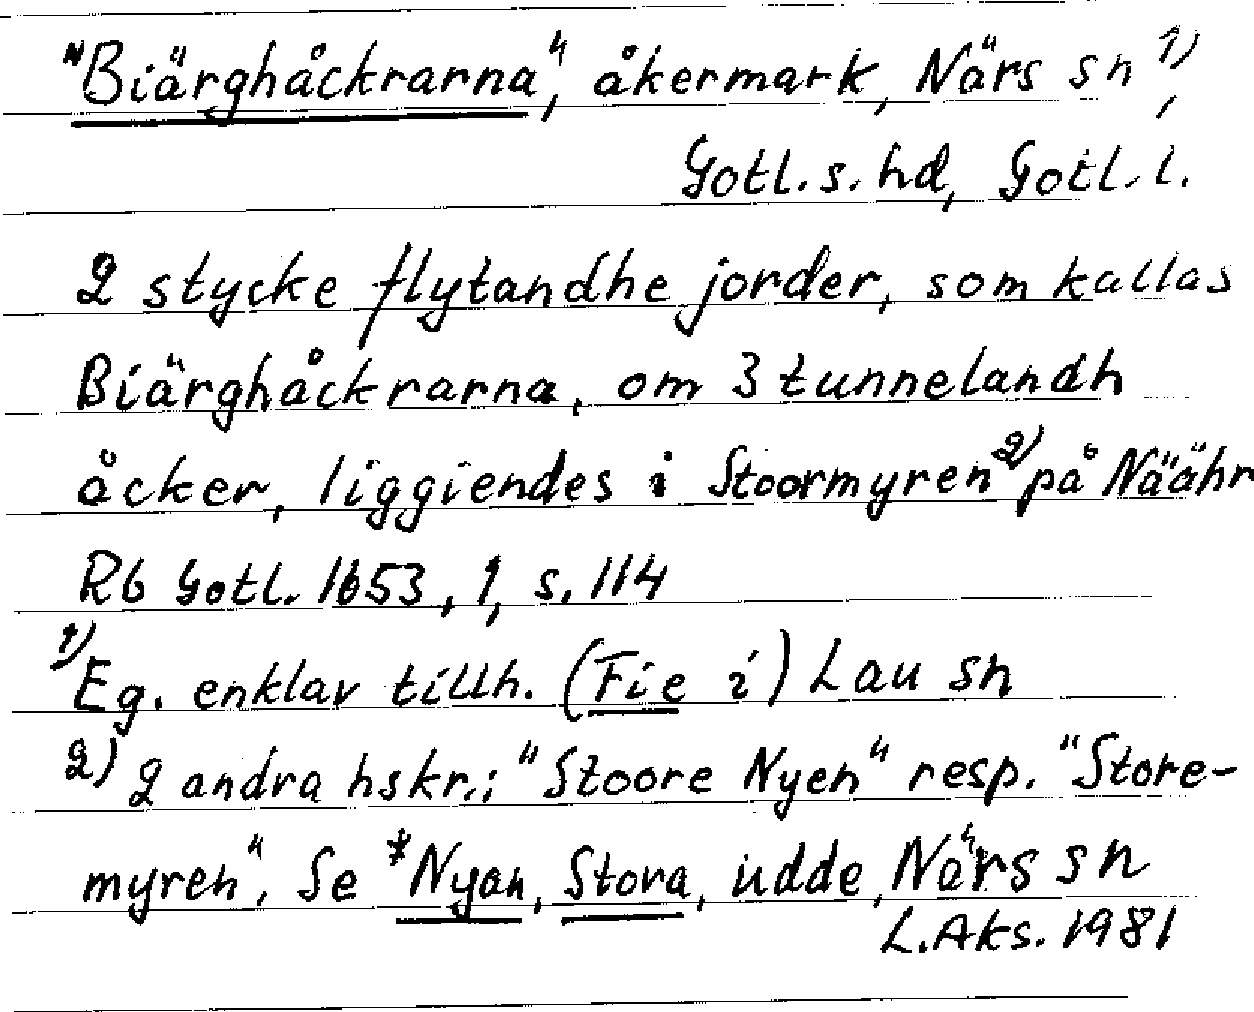 "Biärghåckrarna", åkermark, Närs sn 1),
Gotl. s. hd, Gotl. l.
2 stycke flytandhe jorder, som kallas
Biärghåckrarna, om 3 tunnelandh
åcker, liggiendes i Stoormyren 2) på Näähr
Rb Gotl. 1653, 1, s. 114
1) Eg. enklav tillh. (Fie i) Lau sn
2) 2 andra hskr.: "Stoore Nyen" resp. "Store-
myren". Se *Nyan, Stora, udde, Närs sn
L. Aks. 1981